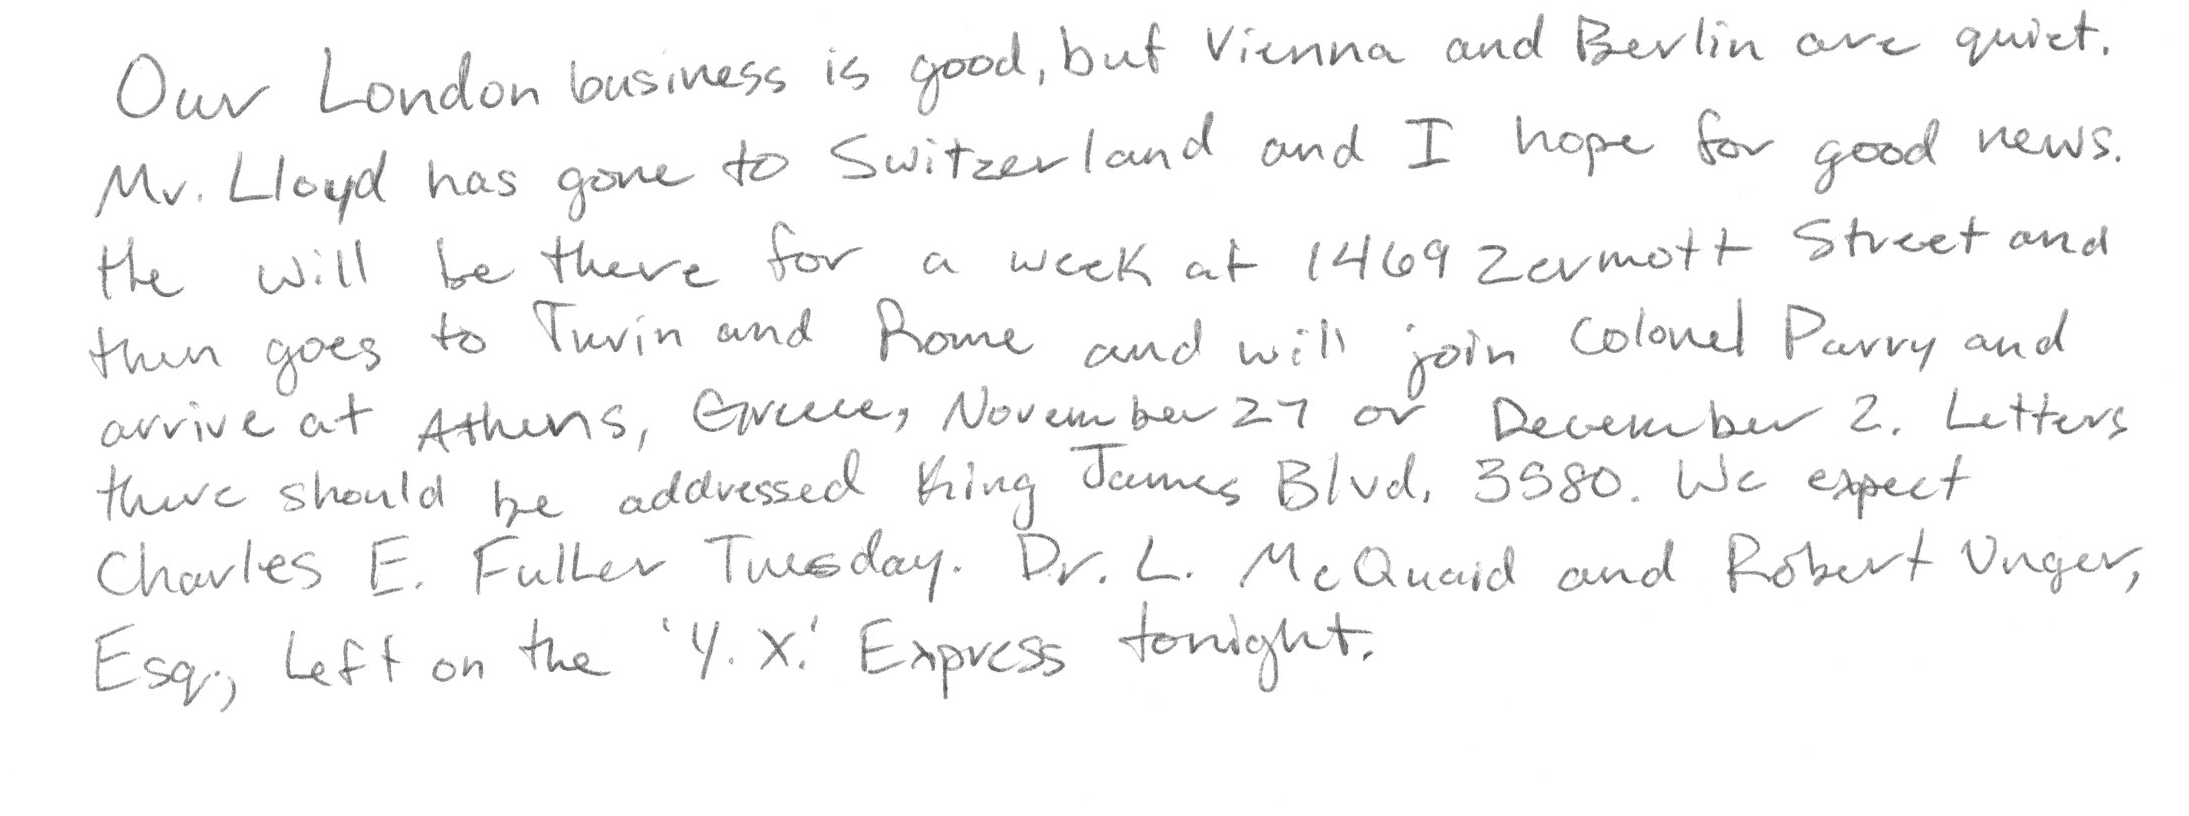 Our London business is good, but Vienna and Berlin are quiet.
Mr. Lloyd has gone to Switzerland and I hope for good news.
He will be there for a week at 1469 Zermott Street and
then goes to Turin and Rome and will join Colonel Parry and
arrive at Athens, Greece, November 27 or December 2. Letters
there should be addressed King James Blvd. 3580. We expect
Charles E. Fuller Tuesday. Dr. L. McQuaid and Robert Unger,
Esq., left on the 'Y. X.' Express tonight.